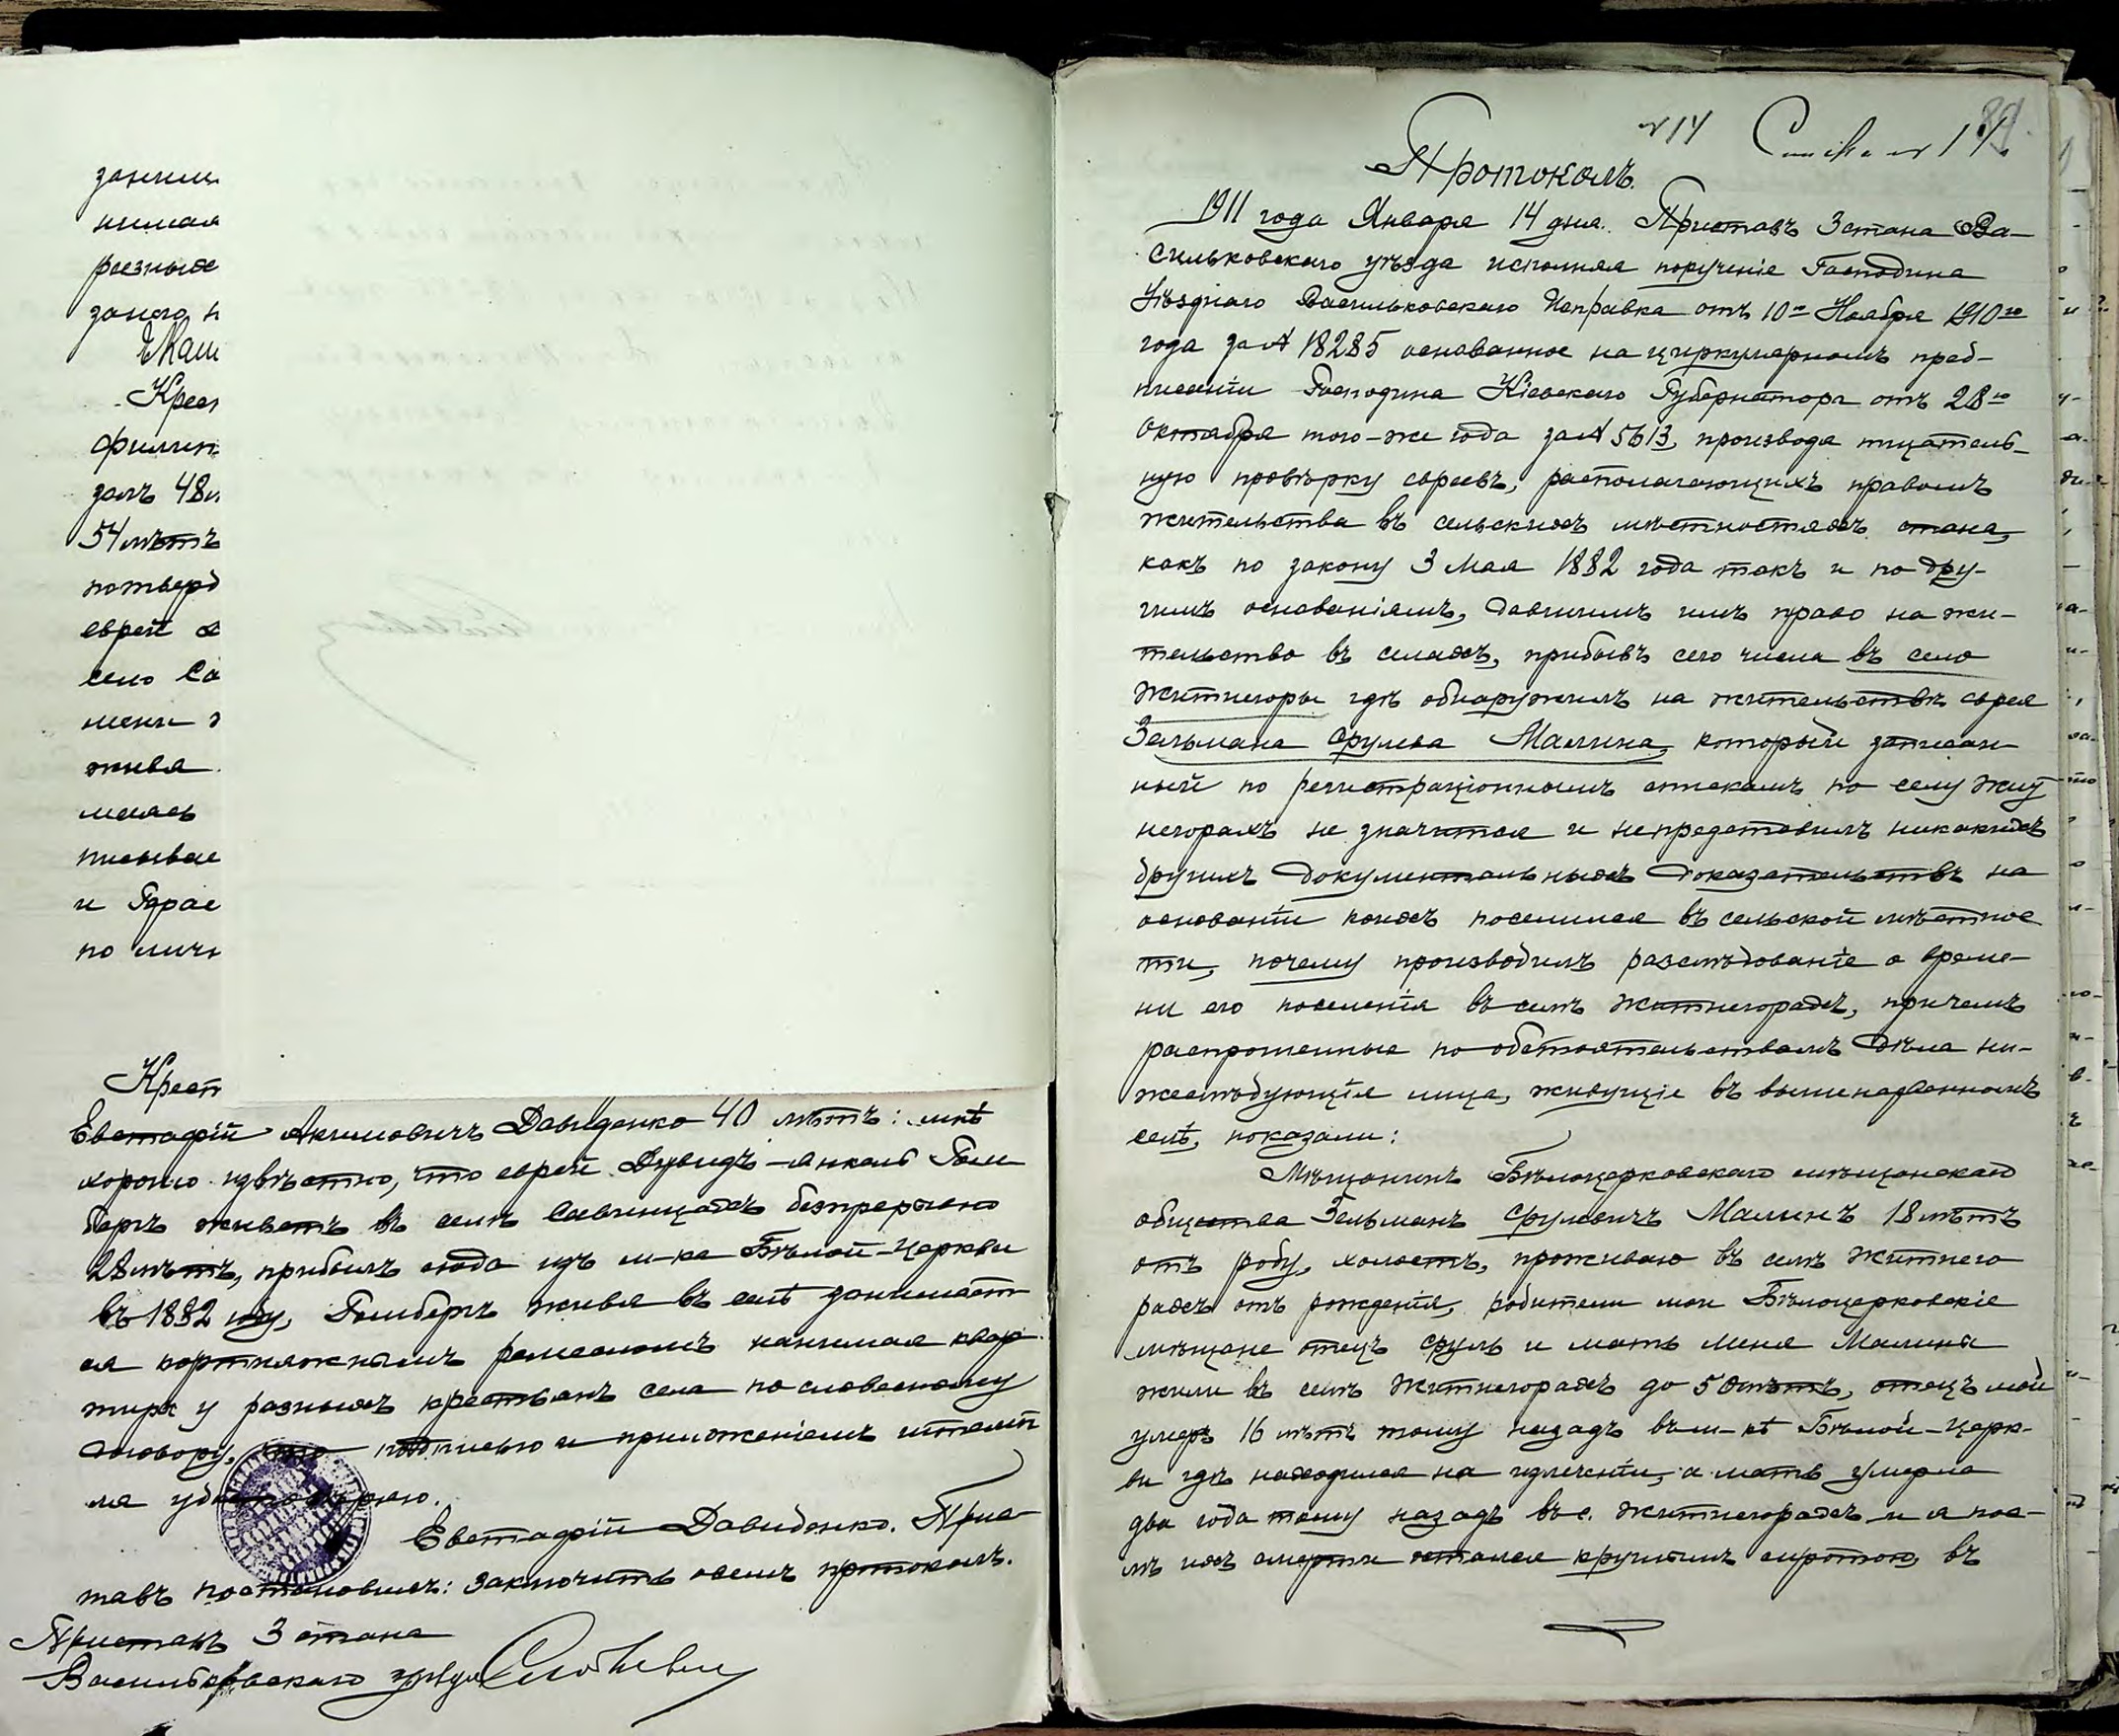 занима
нимая
разныхъ
заного н
Маш
Крест
филип
залъ 48 л
54 лѣтъ
потверд
еврей
село Са
мени
живя
маясь
писывае
и Герас
по личн
Крест
Евстафій Акимовичъ Давиденко 40 лѣтъ: мнѣ
хорошо извѣстно, что еврей Дувидъ-Янкель Голь
бергъ живетъ въ селѣ Савинцахъ безпрерывно
28 лѣтъ, прибылъ сюда изъ м-ка Бѣлой-Церкви
въ 1882 году, Гольбергъ живя въ селѣ занимает
ся портняжнымъ ремесломъ нанимая квар
тиры у разныхъ крестьянъ села по словесному
договору, что подписью и приложеніемъ штемпе
ля удостовѣряю.
Евстафій Давиденко. Прис
тавъ постановилъ: заключить о семъ протоколъ.
Приставъ 3 стана
Васильковскаго уѣзда
№ 14
89
Протоколъ.
1911 года Января 14 дня. Приставъ 3 стана Ва-
сильковскаго уѣзда исполняя порученіе Господина
Уѣзднаго Васильковскаго Исправника отъ 10го Ноября 1910го
года за № 18285 основанное на циркулярномъ пред-
писаніи Господина Кіевскаго Губернатора отъ 28го
Октября того-же года за № 5613, производя тщатель-
ную провѣрку евреевъ, располагающихъ правомъ
жительства въ сельскихъ мѣстностяхъ стана,
какъ по закону 3 Мая 1882 года такъ и по дру-
гимъ основаніямъ, давшимъ имъ право на жи-
тельство въ селахъ, прибывъ сего числа въ село
Житнегоры гдѣ обнаружилъ на жительствѣ еврея
Зельмана Срулева Малина, который записан
ный по регистраціоннымъ спискамъ по селу Жит
негорахъ не значится и непредставилъ никакихъ
другихъ документальныхъ доказательствъ на
основаніи коихъ поселился въ сельской мѣстнос
ти, почему производилъ разслѣдованіе о време-
ни его поселенія въ селѣ Житнегорахъ, причемъ
распрошенные по обстоятельствамъ дѣла ни-
жеслѣдующія лица, живущіе въ вышеназванномъ
селѣ, показали:
Мѣщанинъ Бѣлоцерковскаго мѣщанскаго
общества Зельманъ Срулевичъ Малинъ 18 лѣтъ
отъ роду, холостъ, проживаю въ селѣ Житнего
рахъ отъ рожденія, родители мои Бѣлоцерковскіе
мѣщане отецъ Сруль и мать Меня Малины
жили въ селѣ Житнегорахъ до 50 лѣтъ, отецъ мой
умеръ 16 лѣтъ тому назадъ въ м-кѣ Бѣлой-Церк-
ви гдѣ находился на излеченіи, а мать умерла
два года тому назадъ въ с. Житнегорахъ и я пос-
лѣ ихъ смерти остался круглымъ сиротою, въ